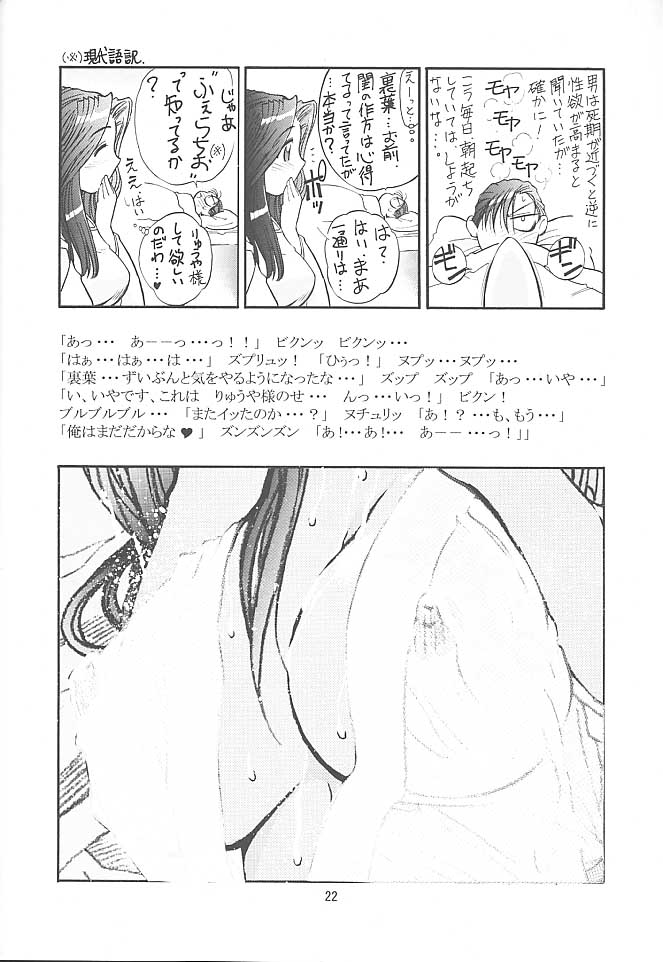 (※)現代語訳.
男は死期が近づくと逆に
性欲が高まると
聞いていたが…
確かに!
モヤ
モヤ
モヤ
モヤ
こう毎日朝起ち
していては、しょうが
ないな…。
ギン
ギン
えーっと…。
裏葉…お前
閨の作方は心得
てるって言ってたが
…本当か?
ポッ
は?
はい、まあ
一通りは…
じゃあ
"ふぇらちお"(※)
って知ってるか
?
ええ…はい
りゅうや様
して欲しい
のだわ…♥
「あっ・・・　あーーっ・・・っ！！」　ビクンッ　ビクンッ・・・
「はぁ・・・はぁ・・・は・・・」　ズプリュッ！　「ひぅっ！」　ヌプッ・・・ヌプッ・・・
「裏葉・・・ずいぶんと気をやるようになったな・・・」　ズップ　ズップ　「あっ・・・いや・・・」
「い、いやです、これは　りゅうや様のせ・・・　んっ・・・いっ！」　ビクン！
ブルブルブル・・・　「またイッたのか・・・？」　ヌチュリッ　「あ！？・・・も、もう・・・」
「俺はまだだからな♥」　ズンズンズン　「あ！・・・あ！・・・　あーー・・・っ！」」
22